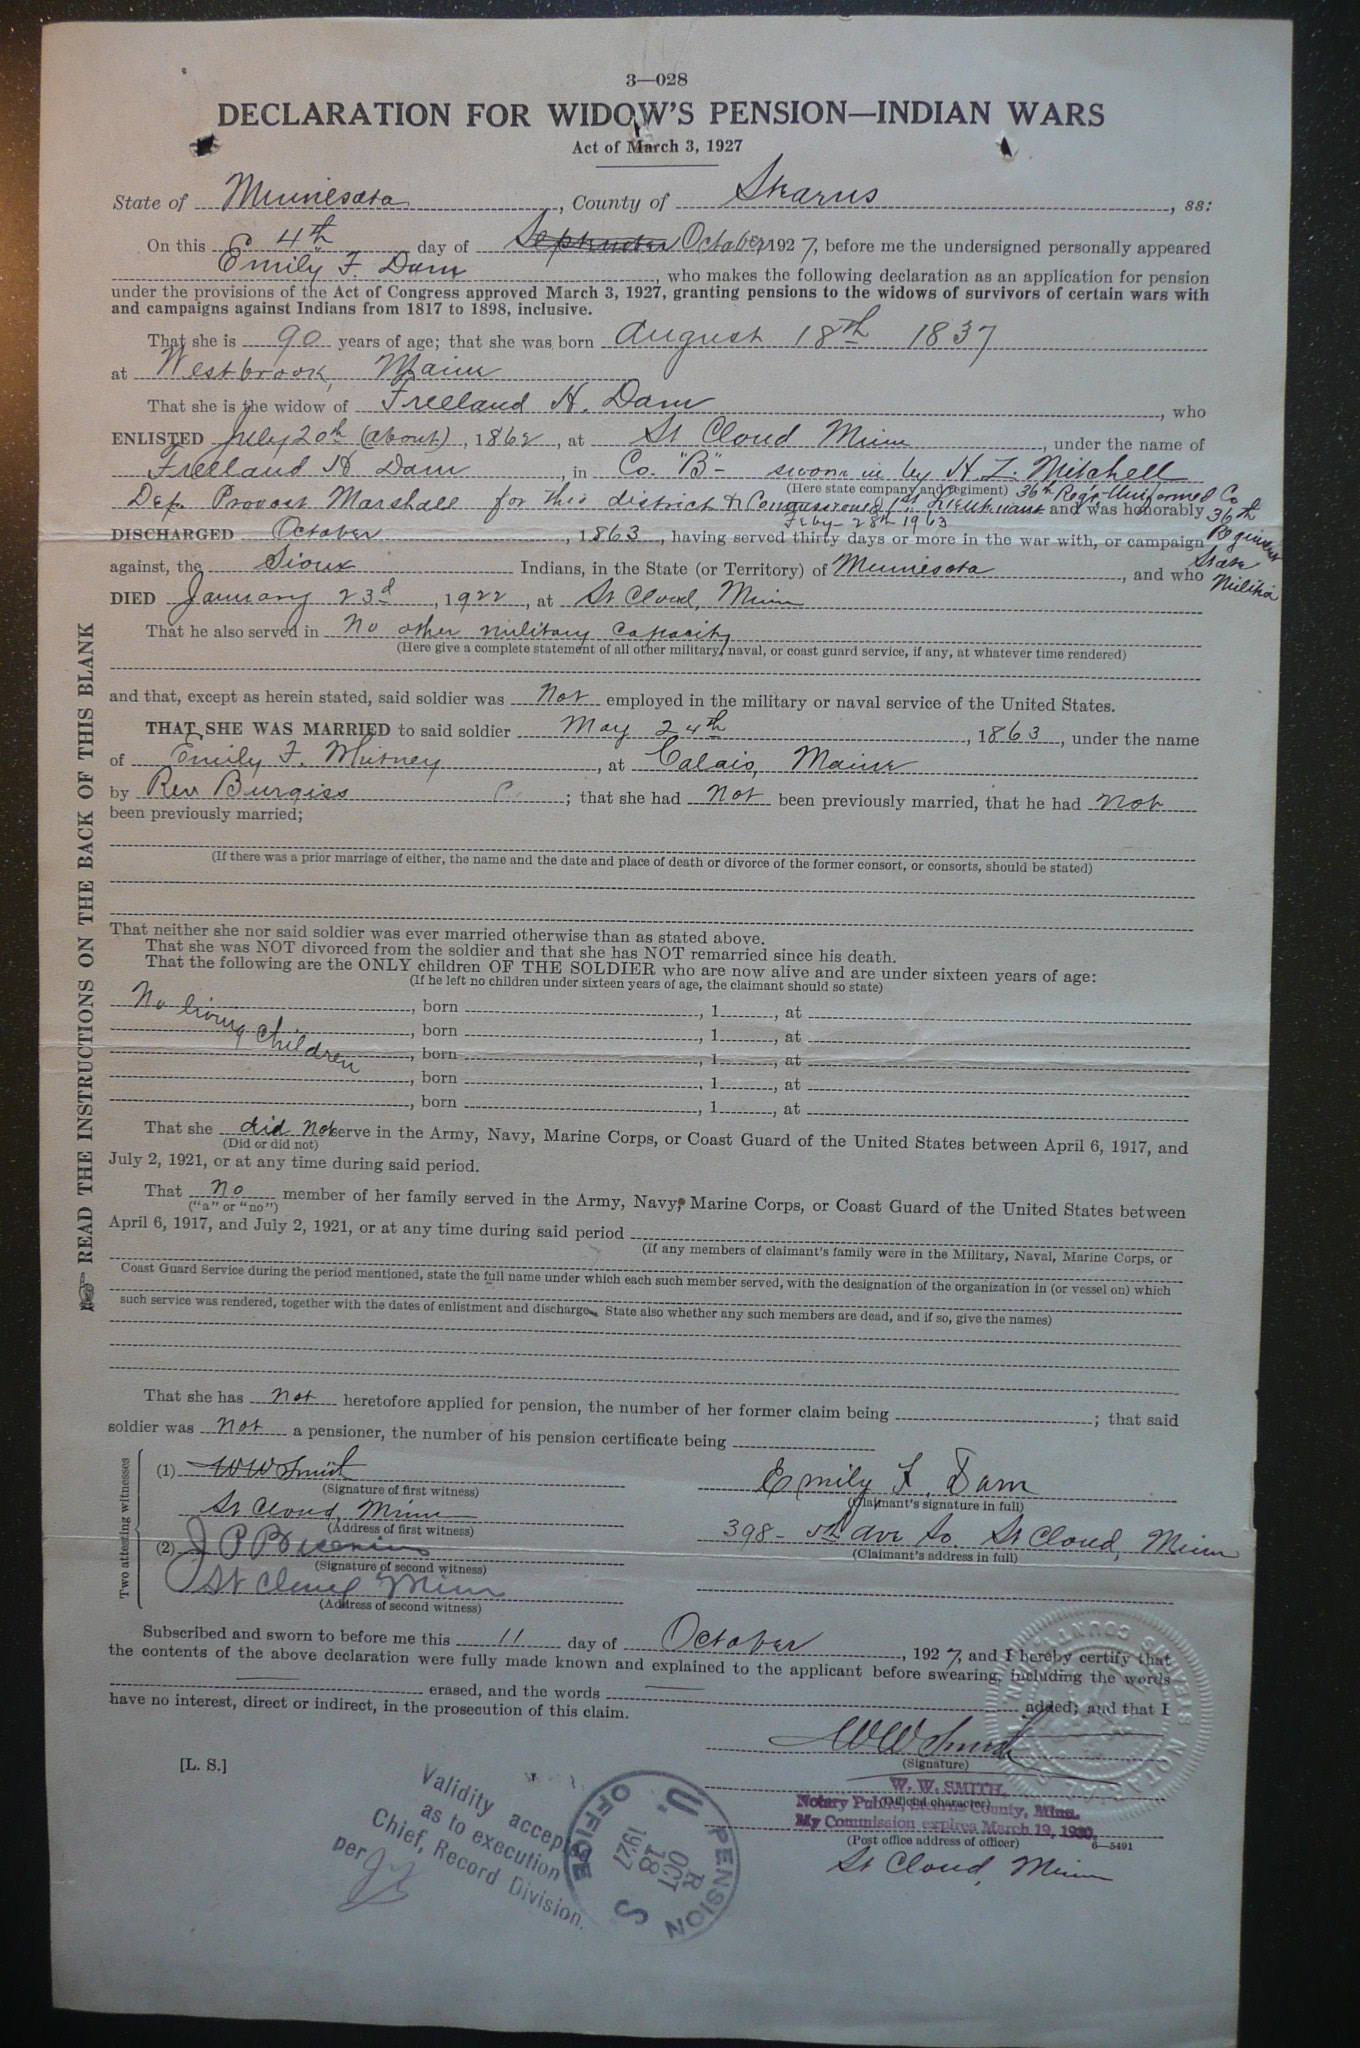 3—028
DECLARATION FOR WIDOW'S PENSION—INDIAN WARS
Act of March 3, 1927
State of Minnesota, County of Stearns, ss:
On this 4th day of September October 1927, before me the undersigned personally appeared
Emily F. Dam, who makes the following declaration as an application for pension
under the provisions of the Act of Congress approved March 3, 1927, granting pensions to the widows of survivors of certain wars with
and campaigns against Indians from 1817 to 1898, inclusive.
That she is 90 years of age; that she was born August 18th 1837
at Westbrook, Maine
That she is the widow of Freeland H. Dam, who
ENLISTED July 20th (about), 1862, at St Cloud Minn, under the name of
Freeland H Dam, in Co. "B" - sworn in by H. Z. Mitchell
(Here state company and regiment) 36th Regt Uniformed Co
Dep. Provost Marshall for this district & Commissioned 1st Lieutenant and was honorably 36th
Feby - 28th 1963 Regiment
DISCHARGED October, 1863, having served thirty days or more in the war with, or campaign State
against, the Sioux Indians, in the State (or Territory) of Minnesota, and who Militia
DIED January 23d, 1922, at St Cloud, Minn
That he also served in No other military capacity
(Here give a complete statement of all other military, naval, or coast guard service, if any, at whatever time rendered)
and that, except as herein stated, said soldier was Not employed in the military or naval service of the United States.
THAT SHE WAS MARRIED to said soldier May 24th, 1863, under the name
of Emily F. Whitney, at Calais, Maine
by Rev Burgiss; that she had Not been previously married, that he had Not
been previously married;
(If there was a prior marriage of either, the name and the date and place of death or divorce of the former consort, or consorts, should be stated)
That neither she nor said soldier was ever married otherwise than as stated above.
That she was NOT divorced from the soldier and that she has NOT remarried since his death.
That the following are the ONLY children OF THE SOLDIER who are now alive and are under sixteen years of age:
(If he left no children under sixteen years of age, the claimant should so state)
No living children, born, 1, at
, born, 1, at
, born, 1, at
, born, 1, at
, born, 1, at
That she did not serve in the Army, Navy, Marine Corps, or Coast Guard of the United States between April 6, 1917, and
(Did or did not)
July 2, 1921, or at any time during said period.
That no member of her family served in the Army, Navy, Marine Corps, or Coast Guard of the United States between
("a" or "no")
April 6, 1917, and July 2, 1921, or at any time during said period
(If any members of claimant's family were in the Military, Naval, Marine Corps, or
Coast Guard Service during the period mentioned, state the full name under which each such member served, with the designation of the organization in (or vessel on) which
such service was rendered, together with the dates of enlistment and discharge. State also whether any such members are dead, and if so, give the names)
That she has not heretofore applied for pension, the number of her former claim being; that said
soldier was not a pensioner, the number of his pension certificate being
Two attesting witnesses
(1) W W Smith
(Signature of first witness)
St Cloud, Minn
(Address of first witness)
(2) J P
(Signature of second witness)
St Cloud Minn
(Address of second witness)
Emily F. Dam
(Claimant's signature in full)
398 - 5th ave So. St Cloud, Minn
(Claimant's address in full)
Subscribed and sworn to before me this 11 day of October, 1927, and I hereby certify that
the contents of the above declaration were fully made known and explained to the applicant before swearing, including the words
erased, and the words added; and that I
have no interest, direct or indirect, in the prosecution of this claim.
W W Smith
(Signature)
[L. S.]
W. W. SMITH,
(Official character)
Notary Public, Stearns County, Minn.
My Commission expires March 12, 1930.
(Post office address of officer) 6—5491
St Cloud, Minn
Validity accepted
as to execution
Chief, Record Division.
per
U. S. PENSION OFFICE
R OCT 18 1927
READ THE INSTRUCTIONS ON THE BACK OF THIS BLANK